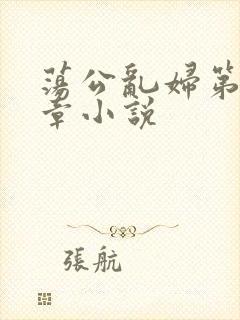 蕩公亂婦第
章小說
張航